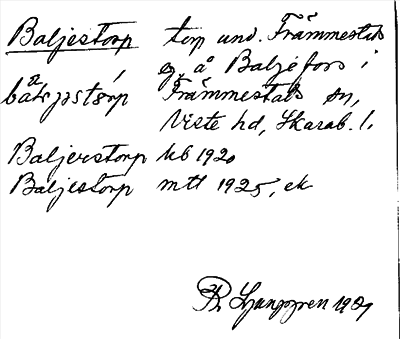 Baljestorp torp und. Främmestads
eg. å Baljefors i
Främmestads sn,
Viste hd, Skarab. l.
Baljerstorp kb 1920
Baljestorp mtl 1925, ek
R. Ljunggren 1929